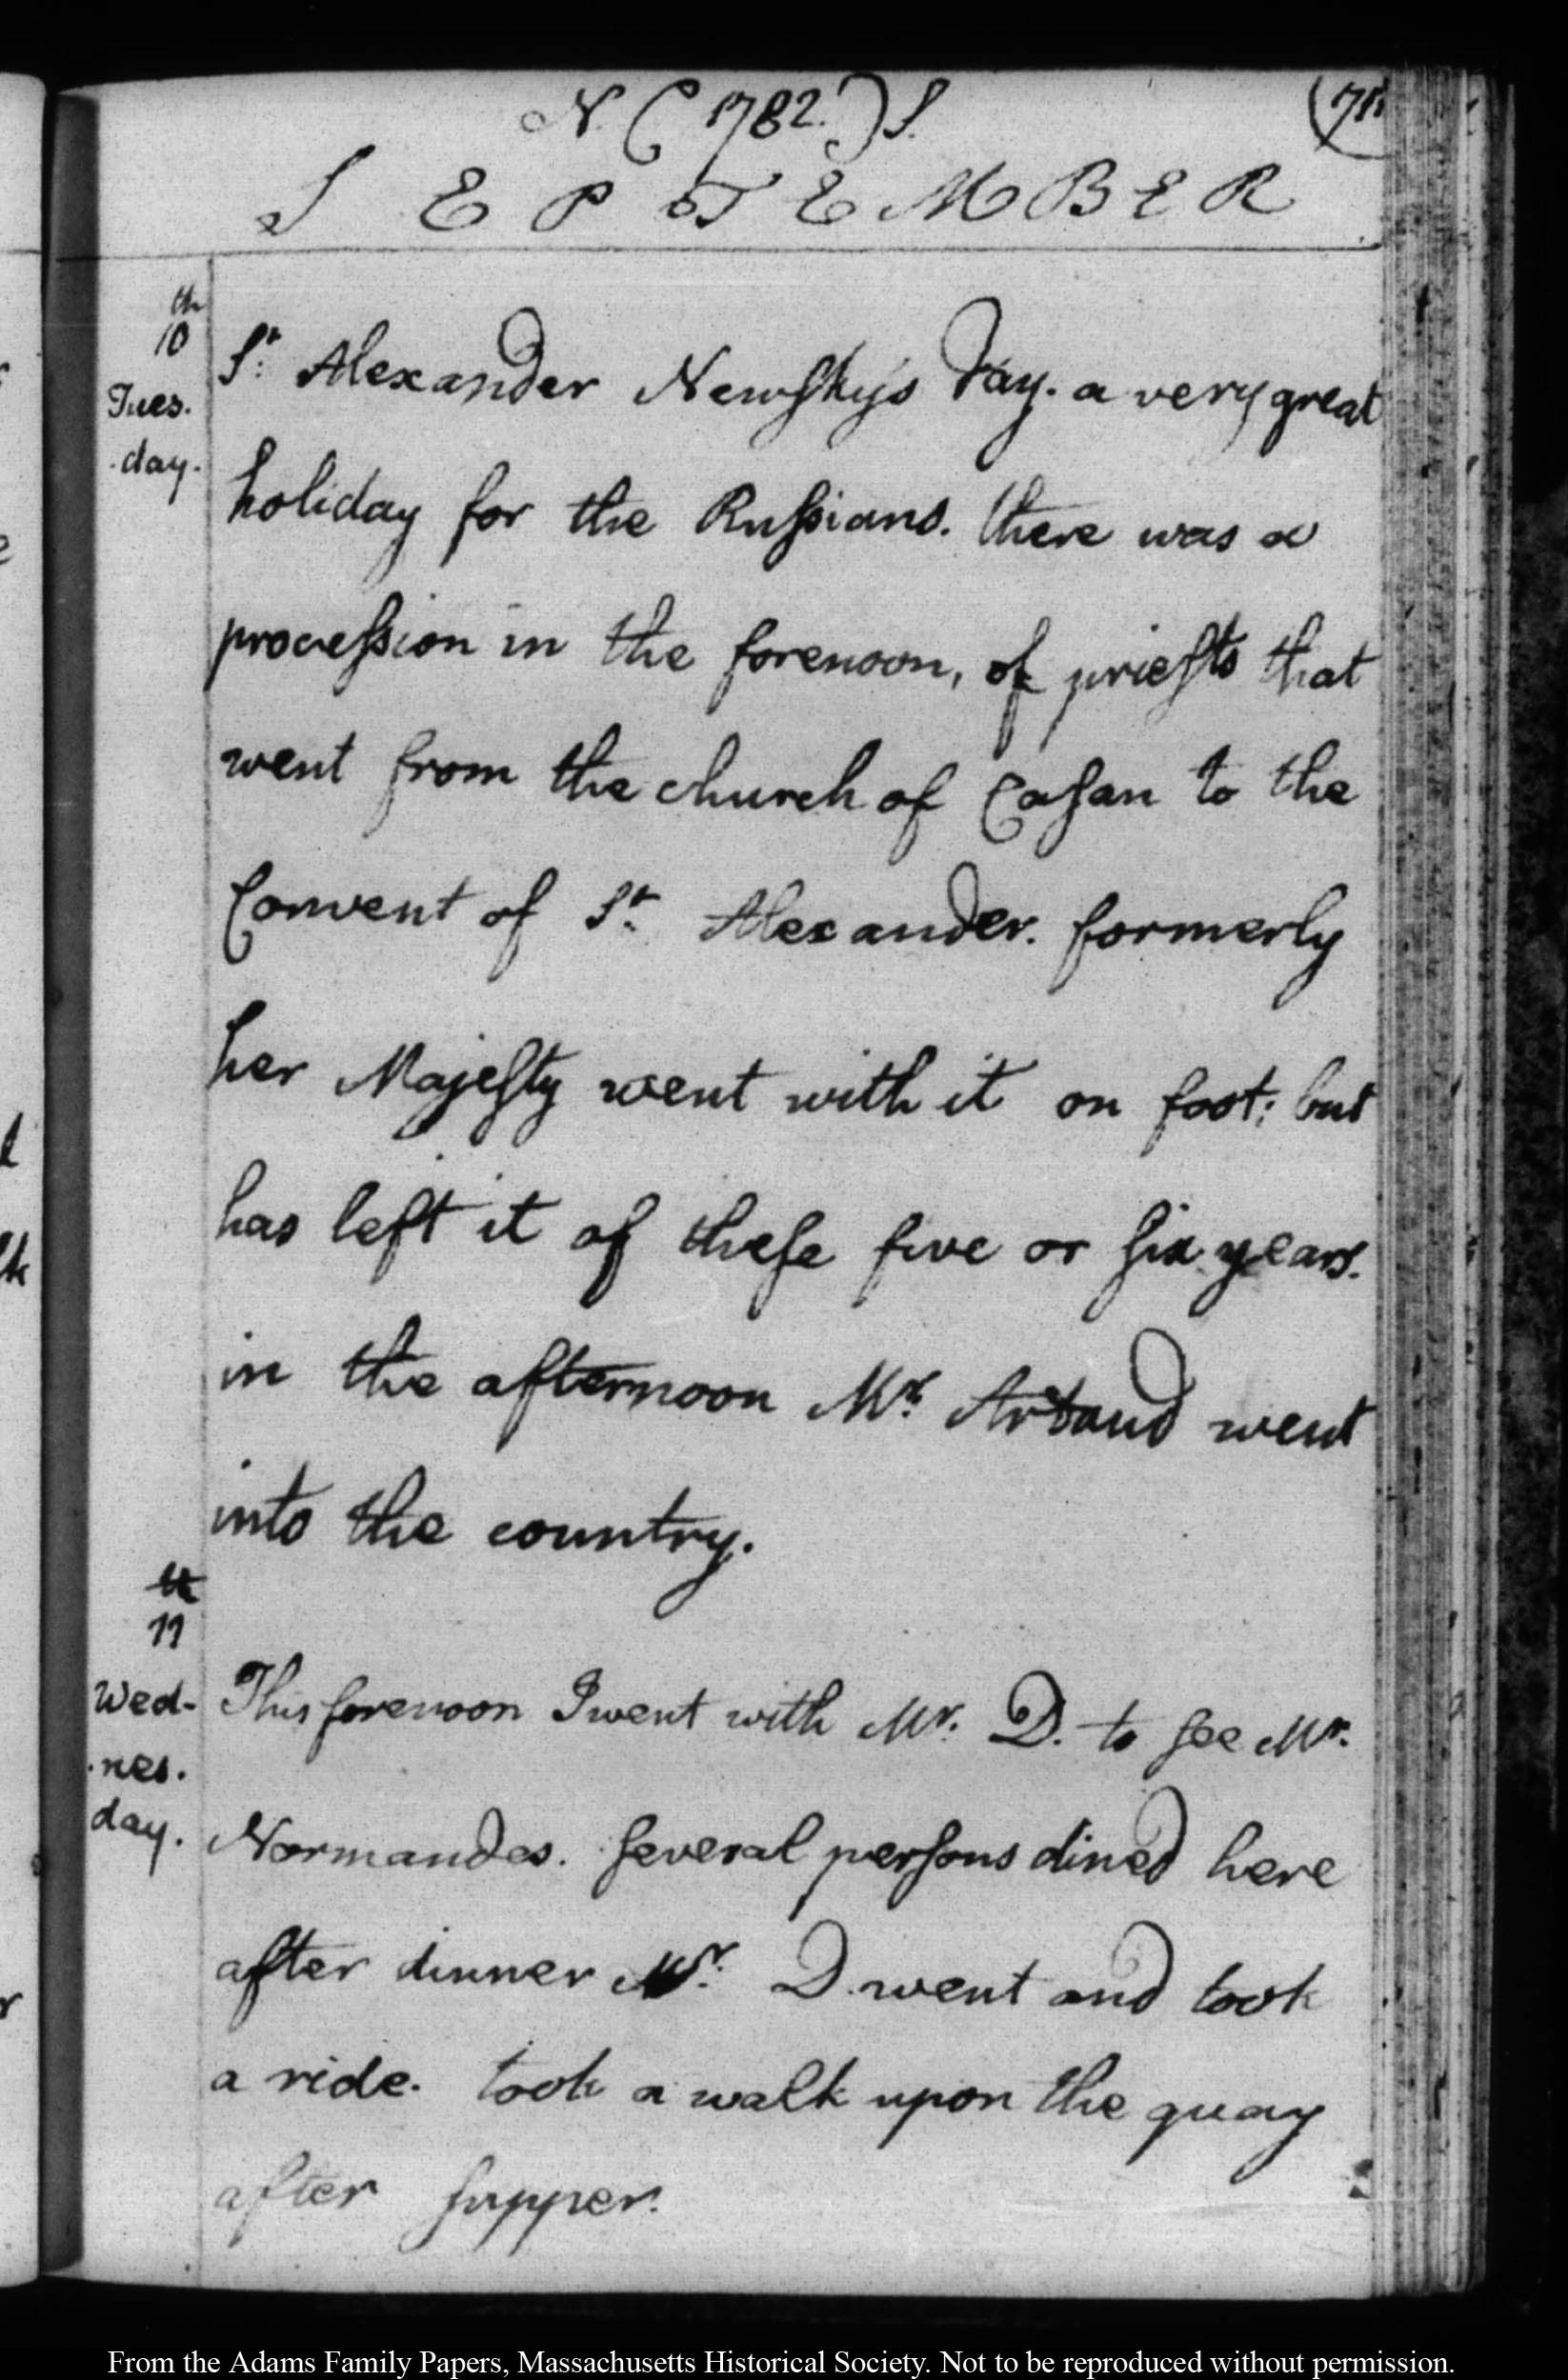 N. (1782.) S.
(71
S E P T E M B E R
th
10
Tues.
day.
St. Alexander Newsky's Day. a very great
holiday for the Russians. there was a
procession in the forenoon, of priests that
went from the church of Casan to the
Convent of St. Alexander. formerly
her Majesty went with it on foot; but
has left it of these five or six years.
in the afternoon Mr. Artaud went
into the country.
th
11
Wed-
nes.
day.
This forenoon I went with Mr. D. to see Mr.
Normandes. several persons dined here
after dinner Mr. D. went and took
a ride. took a walk upon the quay
after supper.
From the Adams Family Papers, Massachusetts Historical Society. Not to be reproduced without permission.